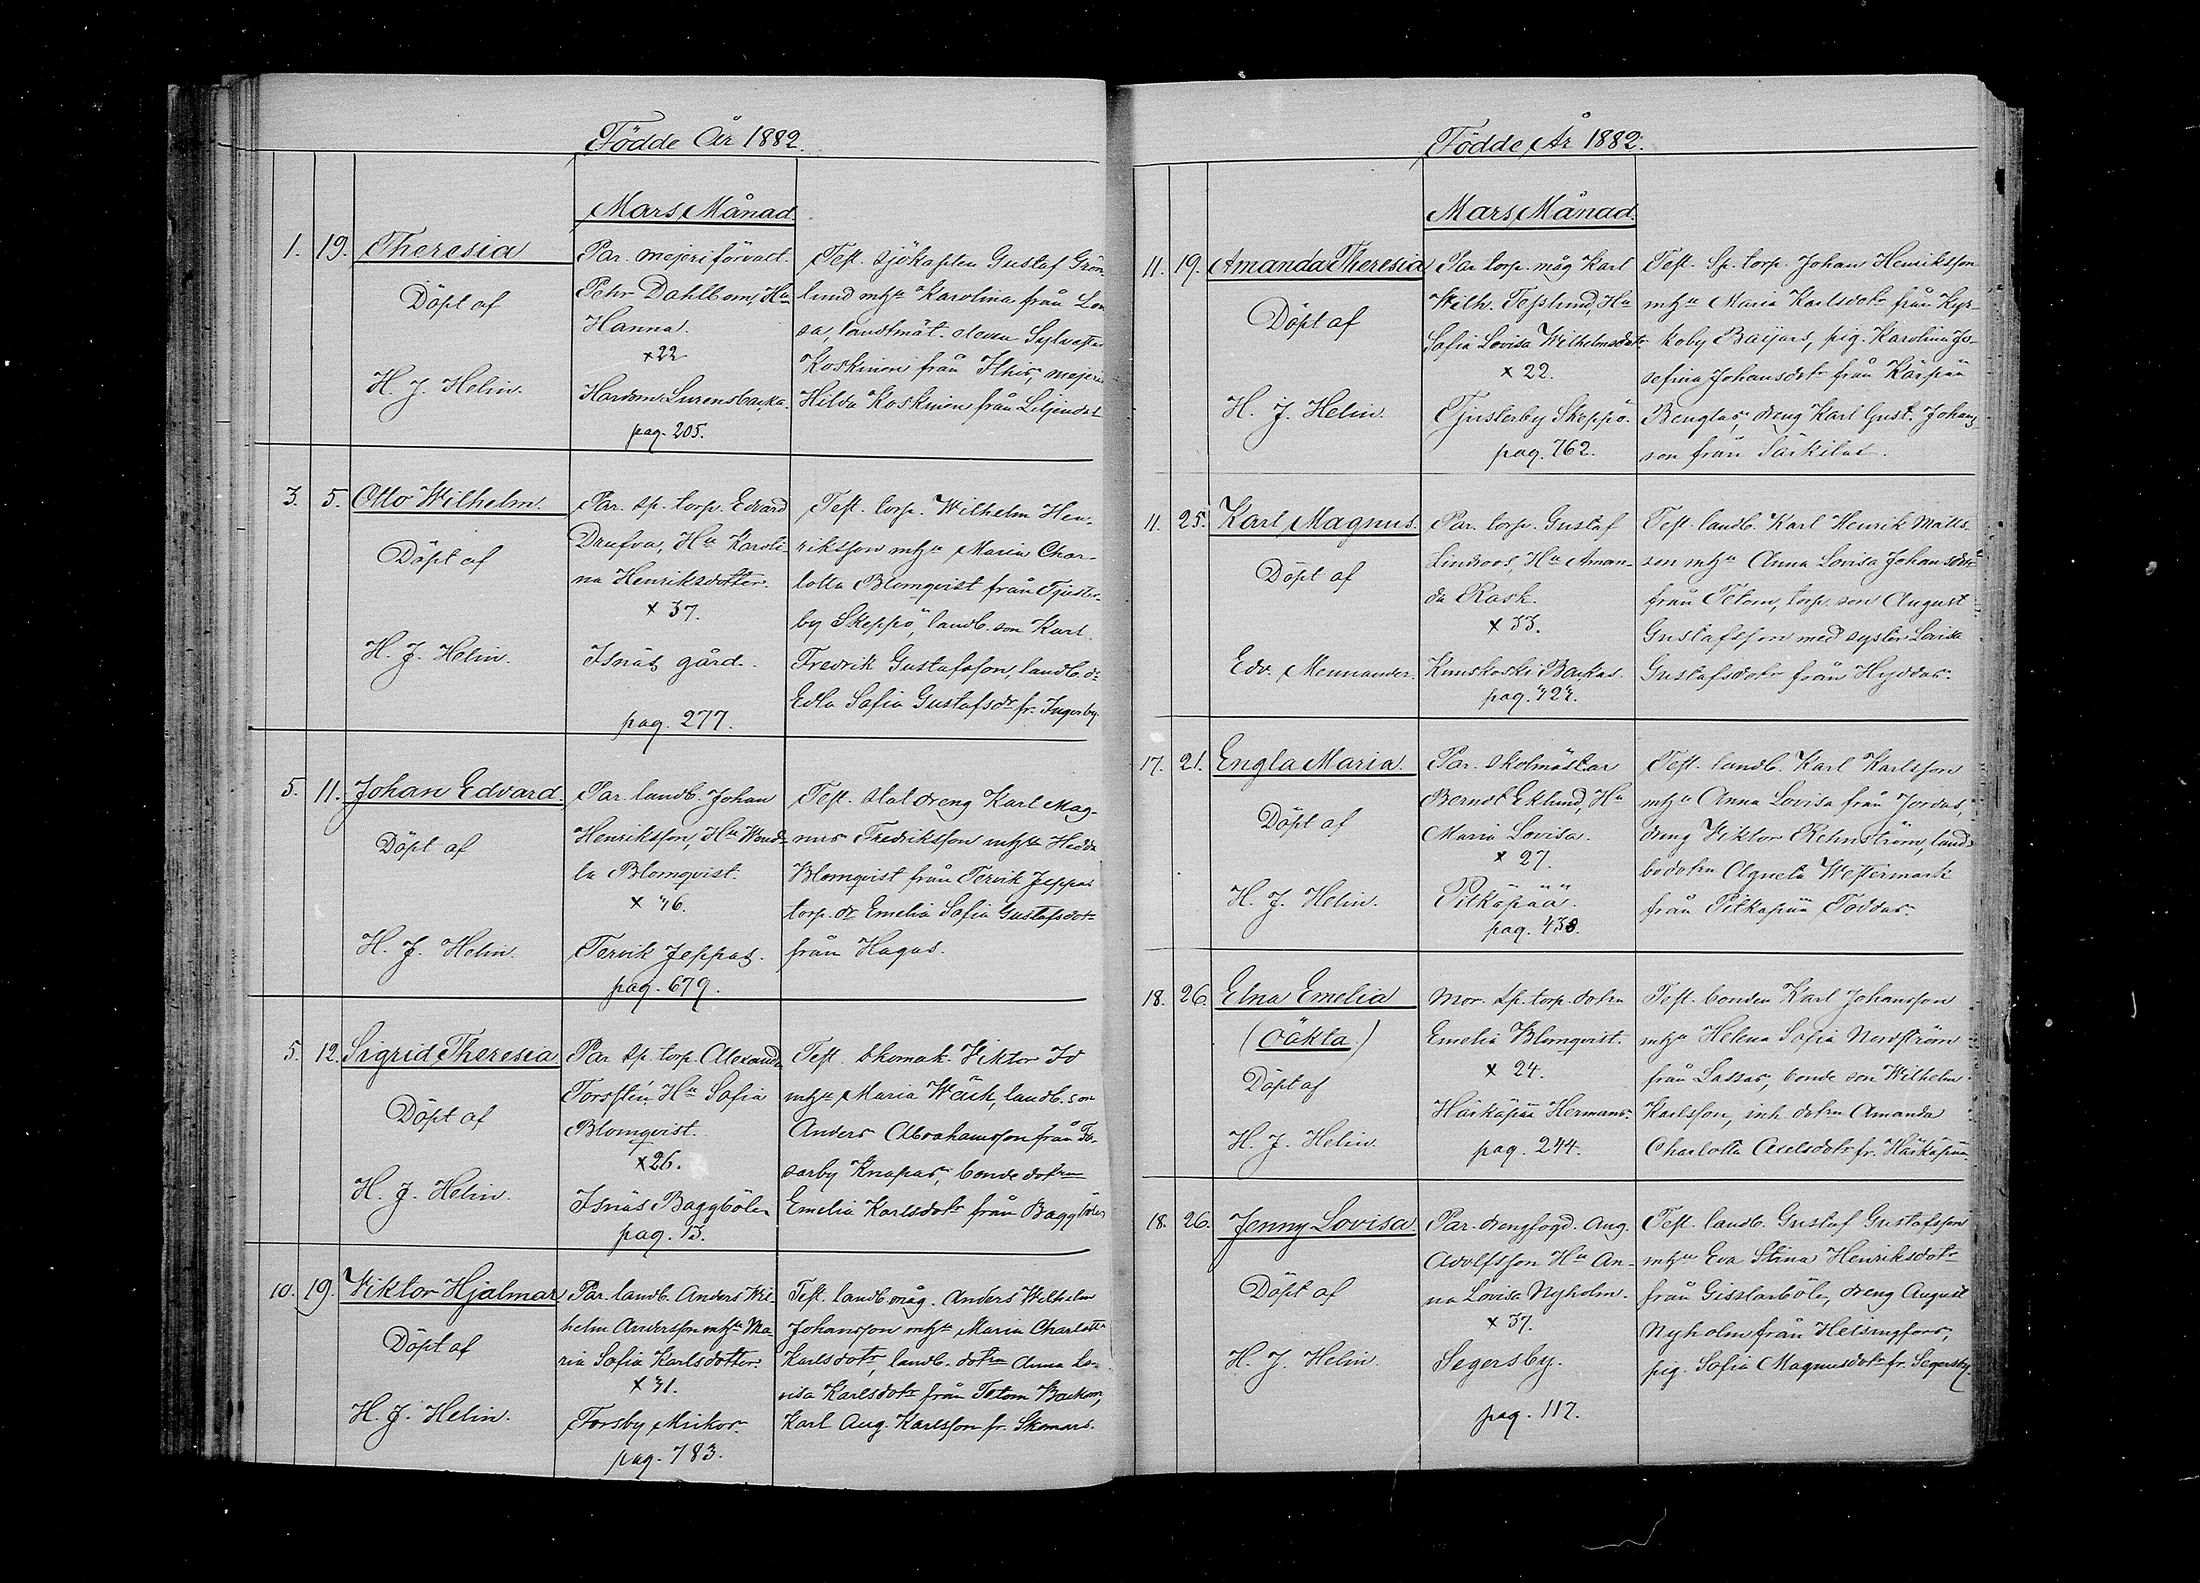 Födde År 1882.
Mars Månad.
1. 19. Theresia
Döpt af
H. J. Helin.
Par. mejeriförvalt.
Pehr Dahlbom, Hu
Hanna.
x 22
Hardom Surensbacka.
pag. 205.
Test. sjökapten Gustaf Grön
lund m hu Karolina från Lovi
sa, landtmät. eleven Sylvester
Koskinen från Ithis, mejer
Hilda Koskinen från Liljendal
3. 5. Otto Wilhelm.
Döpt af
H. J. Helin.
Par. sp. torp. Edvard
Drufva, Hu Karoli-
na Henriksdotter.
x 37.
Isnäs gård.
pag. 277.
Test. torp. Wilhelm Hen-
riksson m hu Maria Char-
lotta Blomqvist från Tjuster-
by Skeppö, landb. son Karl
Fredrik Gustafsson, landb. dr
Edla Sofia Gustafsdr fr. Ingerby.
5. 11. Johan Edvard.
Döpt af
H. J. Helin.
Par. landb. Johan
Henriksson, Hu Wend-
la Blomqvist.
x 46.
Tervik Jeppas.
pag. 679.
Test. stal dreng Karl Mag-
nus Fredriksson m hu Hedda
Blomqvist från Tervik Jeppas
torp. dr Emelia Sofia Gustafsdotr
från Hagas.
5. 12. Sigrid Theresia
Döpt af
H. J. Helin.
Par sp. torp. Alexander
Forstén, Hu Sofia
Blomqvist.
x 26.
Isnäs Baggböle
pag. 15.
Test. skomak. Viktor
m hu Maria Wäck, landb. son
Anders Abrahamsson från To-
sarby Knapas, bonde dotren
Emelia Karlsdotr från Baggböle
10. 19. Viktor Hjalmar
Döpt af
H. J. Helin.
Par. landb. Anders Wil-
helm Andersson m hu Ma-
ria Sofia Karlsdotter.
x 41.
Forsby Mickos.
pag. 783.
Test. landb måg. Anders Wilhelm
Johansson m hu Maria Charlotta
Karlsdotr, landb. dotren Anna Lo-
visa Karlsdotr från Tetom Backom,
Karl Aug. Karlsson fr. Skomars.
Födde År 1882.
Mars Månad.
11. 19. Amanda Theresia
Döpt af
H. J. Helin.
Par torp. måg Karl
Wilh. Tesslund, Hu
Sofia Lovisa Wilhelmsdotr
x 22.
Tjusterby Skeppö.
pag. 762.
Test. Sp. torp. Johan Henriksson
m hu Maria Karlsdotr från Kyr-
koby Baijars, pig. Karolina Jo-
sefina Johansdotr från Käspää
Benglas, dreng Karl Gust. Johans
son från Särkilax.
11. 25. Karl Magnus.
Döpt af
Edv. Mennander.
Par. torp. Gustaf
Lindroos, Hu Aman-
da Rask.
x 33.
Kuuskoski Backas.
pag. 424.
Test. landb. Karl Henrik Matts-
son m hu Anna Lovisa Johansdotr
från Tetom, torp. son August
Gustafsson med syster Lovisa
Gustafsdotr från Hyddas.
17. 21. Engla Maria.
Döpt af
H. J. Helin.
Par. skolmästar
Berndt Eklund, Hu
Maria Lovisa.
x 27.
Pitkäpää.
pag. 438.
Test. landb. Karl Karlsson
m hu Anna Lovisa från Jordas,
dreng Viktor Rehnström, land-
bodotren Agneta Westermark
från Pitkäpää Toddas.
18. 26. Elna Emelia
(oäkta)
Döpt af
H. J. Helin
Mor. sp. torp. dotren
Emelia Blomqvist.
x 24.
Härkäpää Hermans.
pag. 244.
Test. bonden Karl Johansson
m hu Helena Sofia Nordström
från Lassas, bonde son Wilhelm
Karlsson, inh. dotren Amanda
Charlotta Axelsdotr fr. Härkäpää.
18. 26. Jenny Lovisa.
Döpt af
H. J. Helin.
Par. drengfogd. Aug.
Adolfsson Hu An-
na Lovisa Nyholm.
x 37.
Segersby.
pag. 112.
Test. landb. Gustaf Gustafsson
m hu Eva Stina Henriksdotr
från Gisslarböle, dreng August
Nyholm från Helsingfors,
pig. Sofia Magnusdotr fr. Segersby.